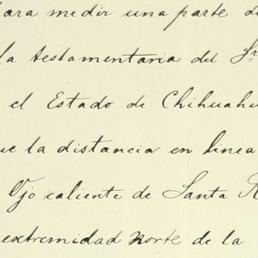 para medir una parte d
la testamentaria del Sr
el Estado de Chihuahu
ue la distancia en linea
Ojo caliente de Santa R
extremidad norte de la